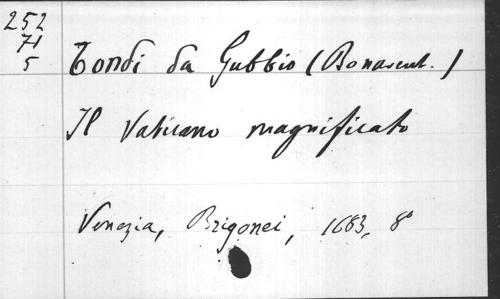 252
71
5
Tondi da Gubbio (Bonavent.)
Il Vaticano magnificato
Venezia, Brigonci, 1683, 8°